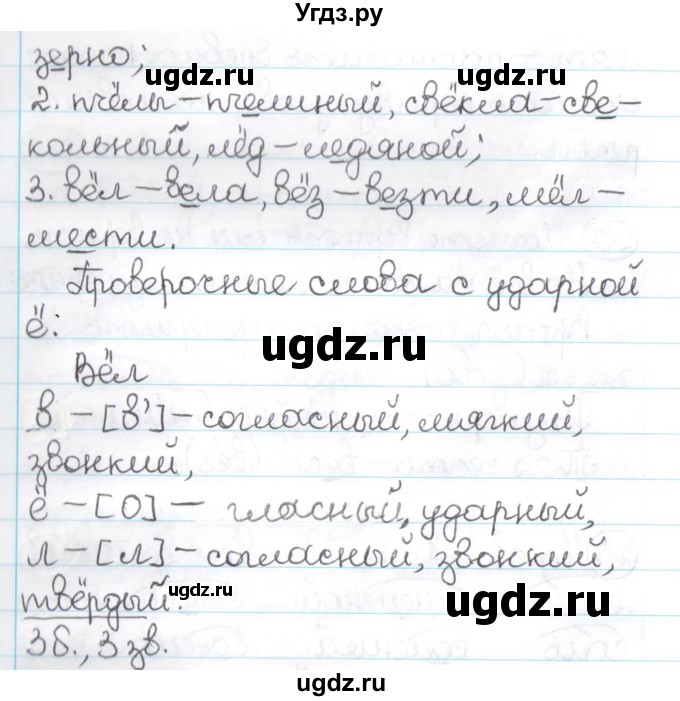 Угдз.ру
зерно;
ugdz.ru ugdz.ru
2. пчёлы – пчелиный, свёкла – све-
кольный, лёд – ледяной;
ugdz.ru
3. вёл – вела, вёз – везти, мёл –
мести.
Проверочные слова с ударной
ё:
ugdz.ru
Вёл
в – [в'] – согласный, мягкий,
звонкий,
ugdz.ru
ё – [О] – гласный, ударный,
л – [л] – согласный, звонкий,
твёрдый.
ugdz.ru ugdz.ru
3б., 3 зв.
ugdz.ru